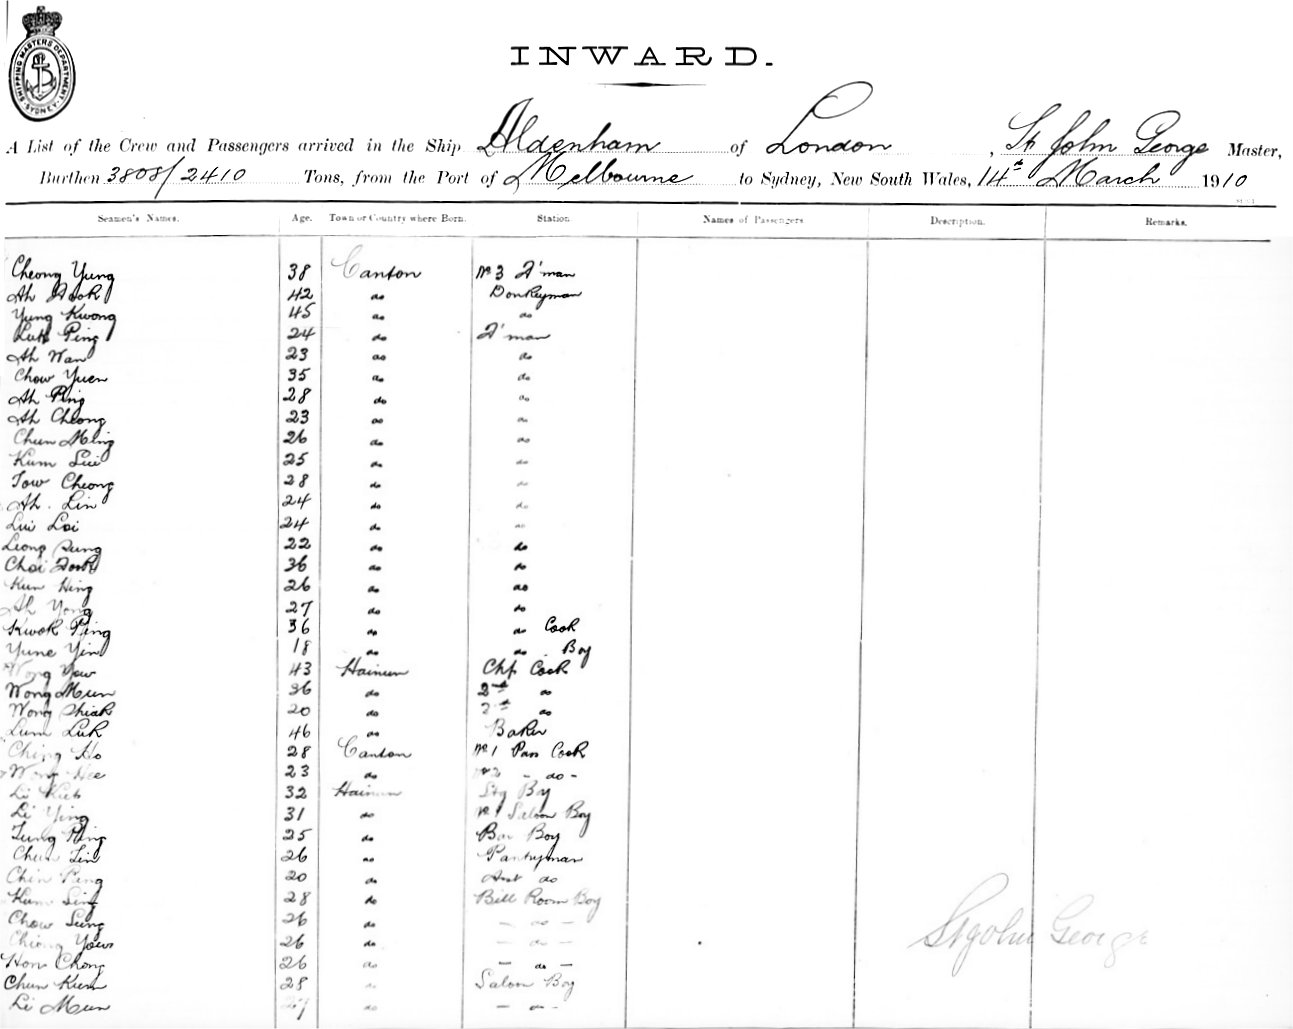 SHIPPING MASTERS DEPARTMENT SYDNEY
INWARD.
A List of the Crew and Passengers arrived in the Ship Aldenham of London, St John George Master,
Burthen 3808/2410 Tons, from the Port of Melbourne to Sydney, New South Wales, 14th March 1910
Seamen's Names. Age. Town or Country where Born. Station Names of Passengers Description. Remarks.
Cheong Yung 38 Canton No 3 F'man
Ah 42 do Donkeyman
Yung Kwong 45 do do
Luk Ping 24 do F'man
Ah Wan 23 do do
Chow Yuen 35 do do
Ah Ping 28 do do
Ah Cheong 23 do do
Chun Ming 26 do do
Kum Lui 25 do do
Tow Cheong 28 do do
Ah. Lin 24 do do
Lui Loi 24 do do
Leong Sung 22 do do
Choi Fook 36 do do
Kun Hing 26 do do
Ah Yong 27 do do
Kwok Ping 36 do do Cook
Yune Yin 18 do do Boy
Wong Yow 43 Hainan Chf Cook
Wong Mun 36 do 2nd do
Wong 20 do do
Lum Luk 46 do Baker
Ching Ho 28 Canton No 1 Pan Cook
Wong Hee 23 do No 2 - do -
Li 32 Hainan Stg Boy
Li Ying 31 do No 1 Saloon Boy
Tung Ping 25 do Bar Boy
Chun Lin 26 do Pantryman
Chin Ping 20 do Asst do
Kum Sing 28 do Bill Room Boy
Chow Sung 26 do - do -
Chiong Yow 26 do - do -
Hon Chong 26 do - do -
Chun Kum 28 do Saloon Boy
Li Mun 27 do - do -
St John George